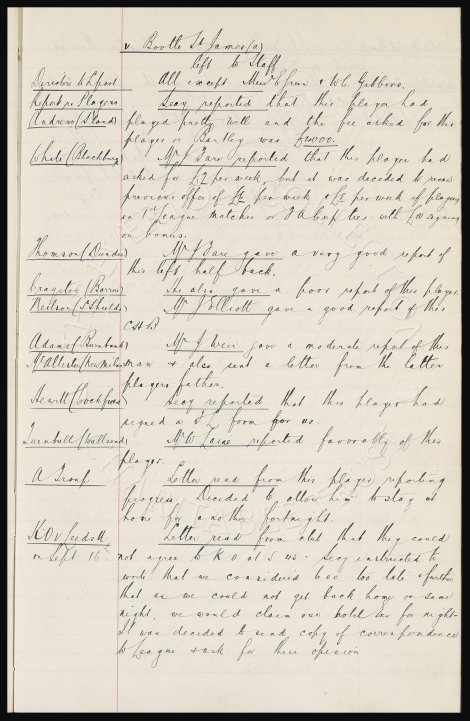 v Bootle St James (a)
left to Staff
Director to Spot All except Messrs & W.C. Gibbins.
Report re Players Secy reported that this player had
Andrew (S'land) played pretty well and the fee asked for this
player or Bartley was £1000.
White (Blackburn) Mr J Fare reported that this player had
asked for £7 per week, but it was decided to
previous offer of per week & £ per week if playing
in 1st League matches or F A Cup ties with £10 signing
on bonus.
Thomson (Dundee) Mr J Fare gave a very good report of
this left half back.
Cragston (Barrow) He also gave a poor report of this player.
Neilson (S. Shields) Mr J Elliott gave a good report of this
C H B
Adams (Burnbank) Mr J Weir gave a moderate report of this
McAllister (New Milns) man & also sent a letter from the latter
players father.
Hewitt (Cockfield) Secy reported that this player had
signed a F L form for us.
Turnbull (Wallsend) Mr W reported favorably of this
player.
A Troup Letter read from this player reporting
progress. Decided to allow him to stay at
home for another fortnight.
K.O. v Leeds U Letter read from club that they could
on Sept 16th not agree to K O at 5 45. Secy instructed to
write that we considered 6 oc too late & further
that as we could not get back home on same
night, we would claim our hotel exs for night.
It was decided to send copy of correspondence
to League & ask for their opinion